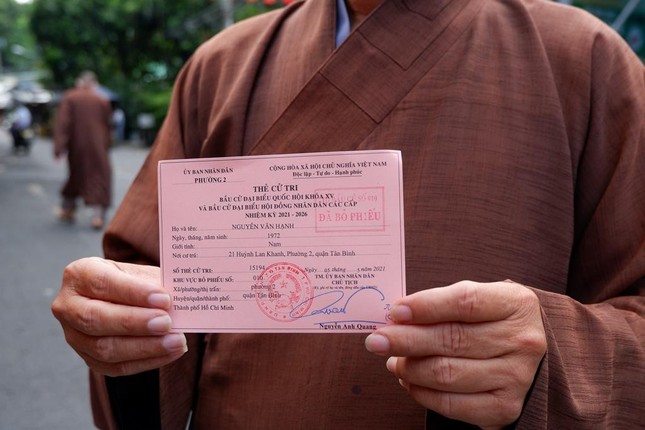 ỦY BAN NHÂN DÂN
PHƯỜNG 2
CỘNG HÒA XÃ HỘI CHỦ NGHĨA VIỆT NAM
Độc lập - Tự do - Hạnh phúc
THẺ CỬ TRI
BẦU CỬ ĐẠI BIỂU QUỐC HỘI KHÓA XV
VÀ BẦU CỬ ĐẠI BIỂU HỘI ĐỒNG NHÂN DÂN CÁC CẤP
NHIỆM KỲ 2021 - 2026
ĐÃ BỎ PHIẾU
Họ và tên: NGUYỄN VĂN HẠNH
Ngày, tháng, năm sinh: 1972
Giới tính: Nam
Nơi cư trú: 21 Huỳnh Lan Khanh, Phường 2, quận Tân Bình
SỐ THẺ CỬ TRI: 15194
KHU VỰC BỎ PHIẾU SỐ: 016
Xã/phường/thị trấn: phường 2
Huyện/quận/thành phố: quận Tân Bình
Thành phố Hồ Chí Minh
Ngày tháng 5 năm 2021
TM. ỦY BAN NHÂN DÂN
CHỦ TỊCH
Nguyễn Anh Quang